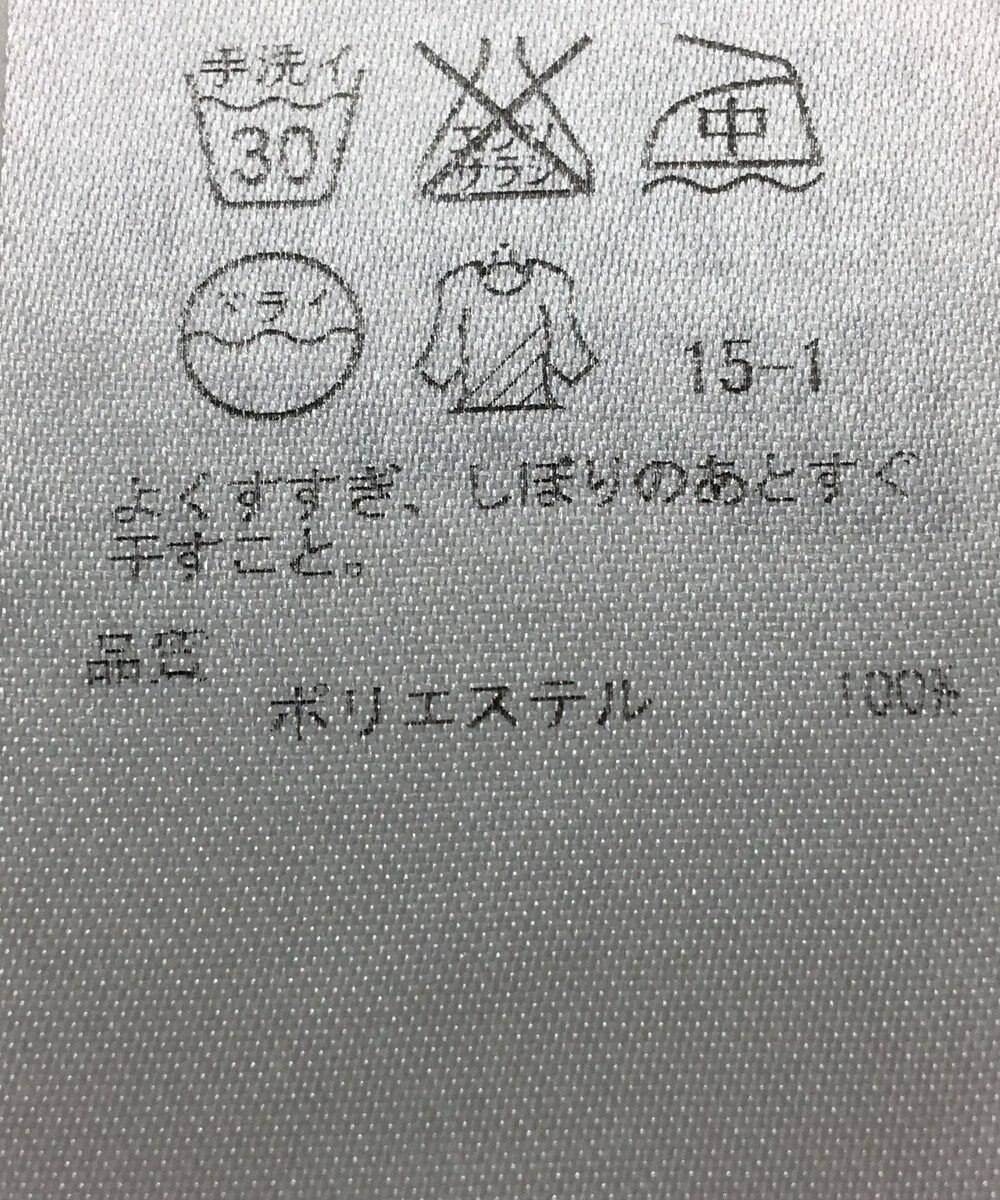 手洗イ
30
エンソ
サラシ
中
ドライ
15-1
よくすすぎ、しぼりのあとすぐ
干すこと。
品質
ポリエステル 100%